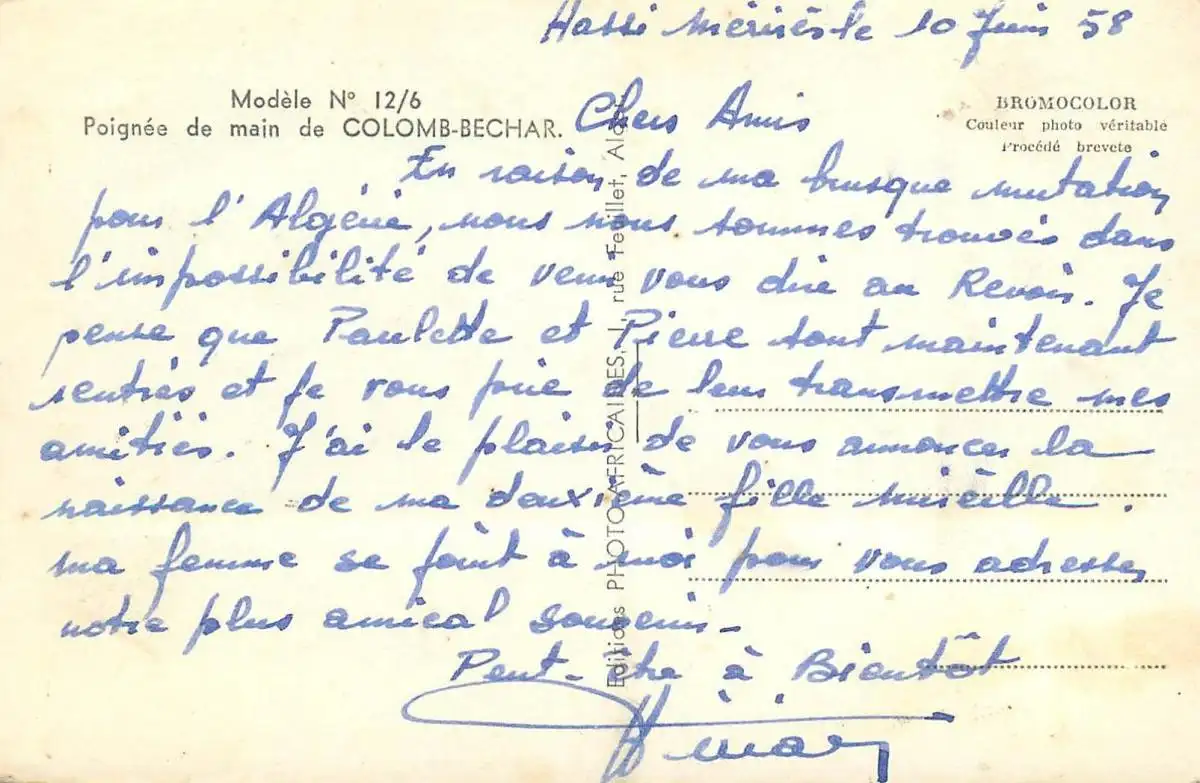 Hassi Mérinès le 10 Juin 58
Modèle N° 12/6
Poignée de main de COLOMB-BECHAR.
BROMOCOLOR
Couleur photo véritable
Procédé breveté
Chers Amis
En raison de ma brusque mutation
pour l'Algérie, nous nous sommes trouvés dans
l'impossibilité de venir vous dire au Revoir. Je
pense que Paulette et Pierre sont maintenant
rentrés et je vous prie de leur transmettre mes
amitiés. J'ai le plaisir de vous annoncer la
naissance de ma deuxième fille Mireille.
ma femme se joint à moi pour vous adresser
notre plus amical souvenir_
Peut-être à Bientôt
Editions PHOTO-AFRICAINES, 1, rue Feuillet, Alger